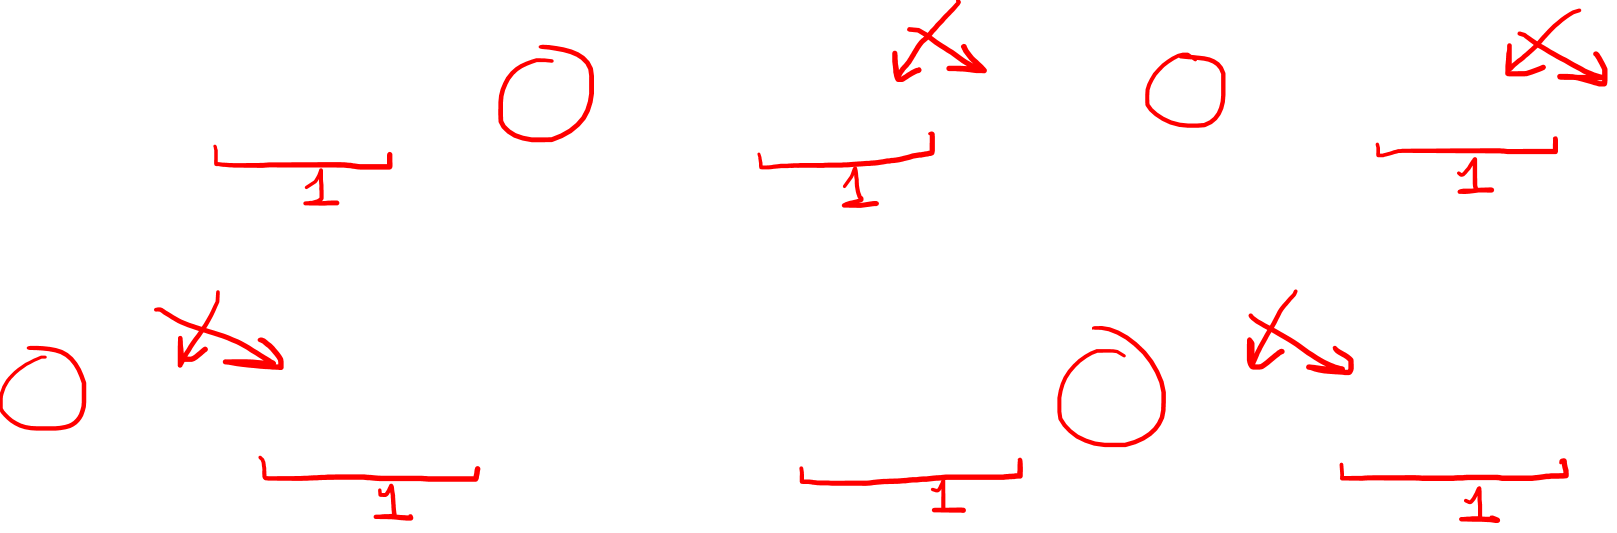 1 1 1
1 1 1